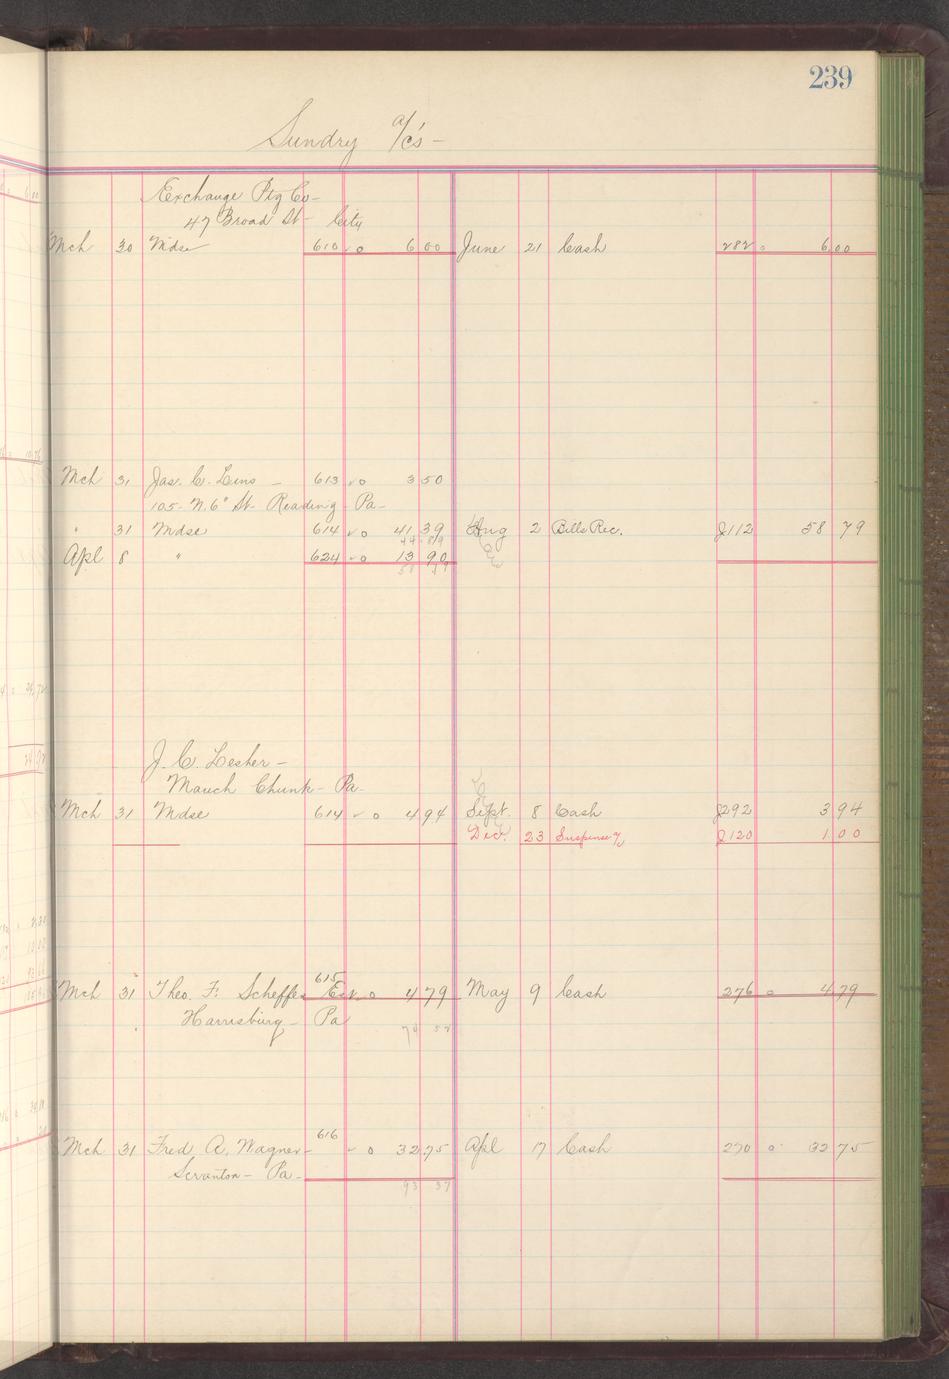 239
Sundry a/c's —
Exchange Ptg Co —
47 Broad St — City
Mch 30 Mdse 610 ✓ o 6 00 June 21 Cash 282 o 6 00
Mch 31 Jas. C. Lins — 613 ✓ o 3 50
105 - N. 6" St. Reading Pa —
" 31 Mdse 614 ✓ o 41 39 Aug 2 Bills Rec. J112 58 79
44 89
Apl 8 " 624 ✓ o 13 90
58 79
J. C. Lesher —
Mauch Chunk — Pa —
Mch 31 Mdse 614 ✓ o 4 94 Sept. 8 Cash 292 3 94
Dec. 23 Suspense a/c J120 1 00
615
Mch 31 Theo. F. Scheffer Est. o 4 79 May 9 Cash 276 o 4 79
Harrisburg — Pa
616
Mch 31 Fred A. Wagner — ✓ o 32 75 Apl 17 Cash 270 o 32 75
Scranton — Pa —
93 37